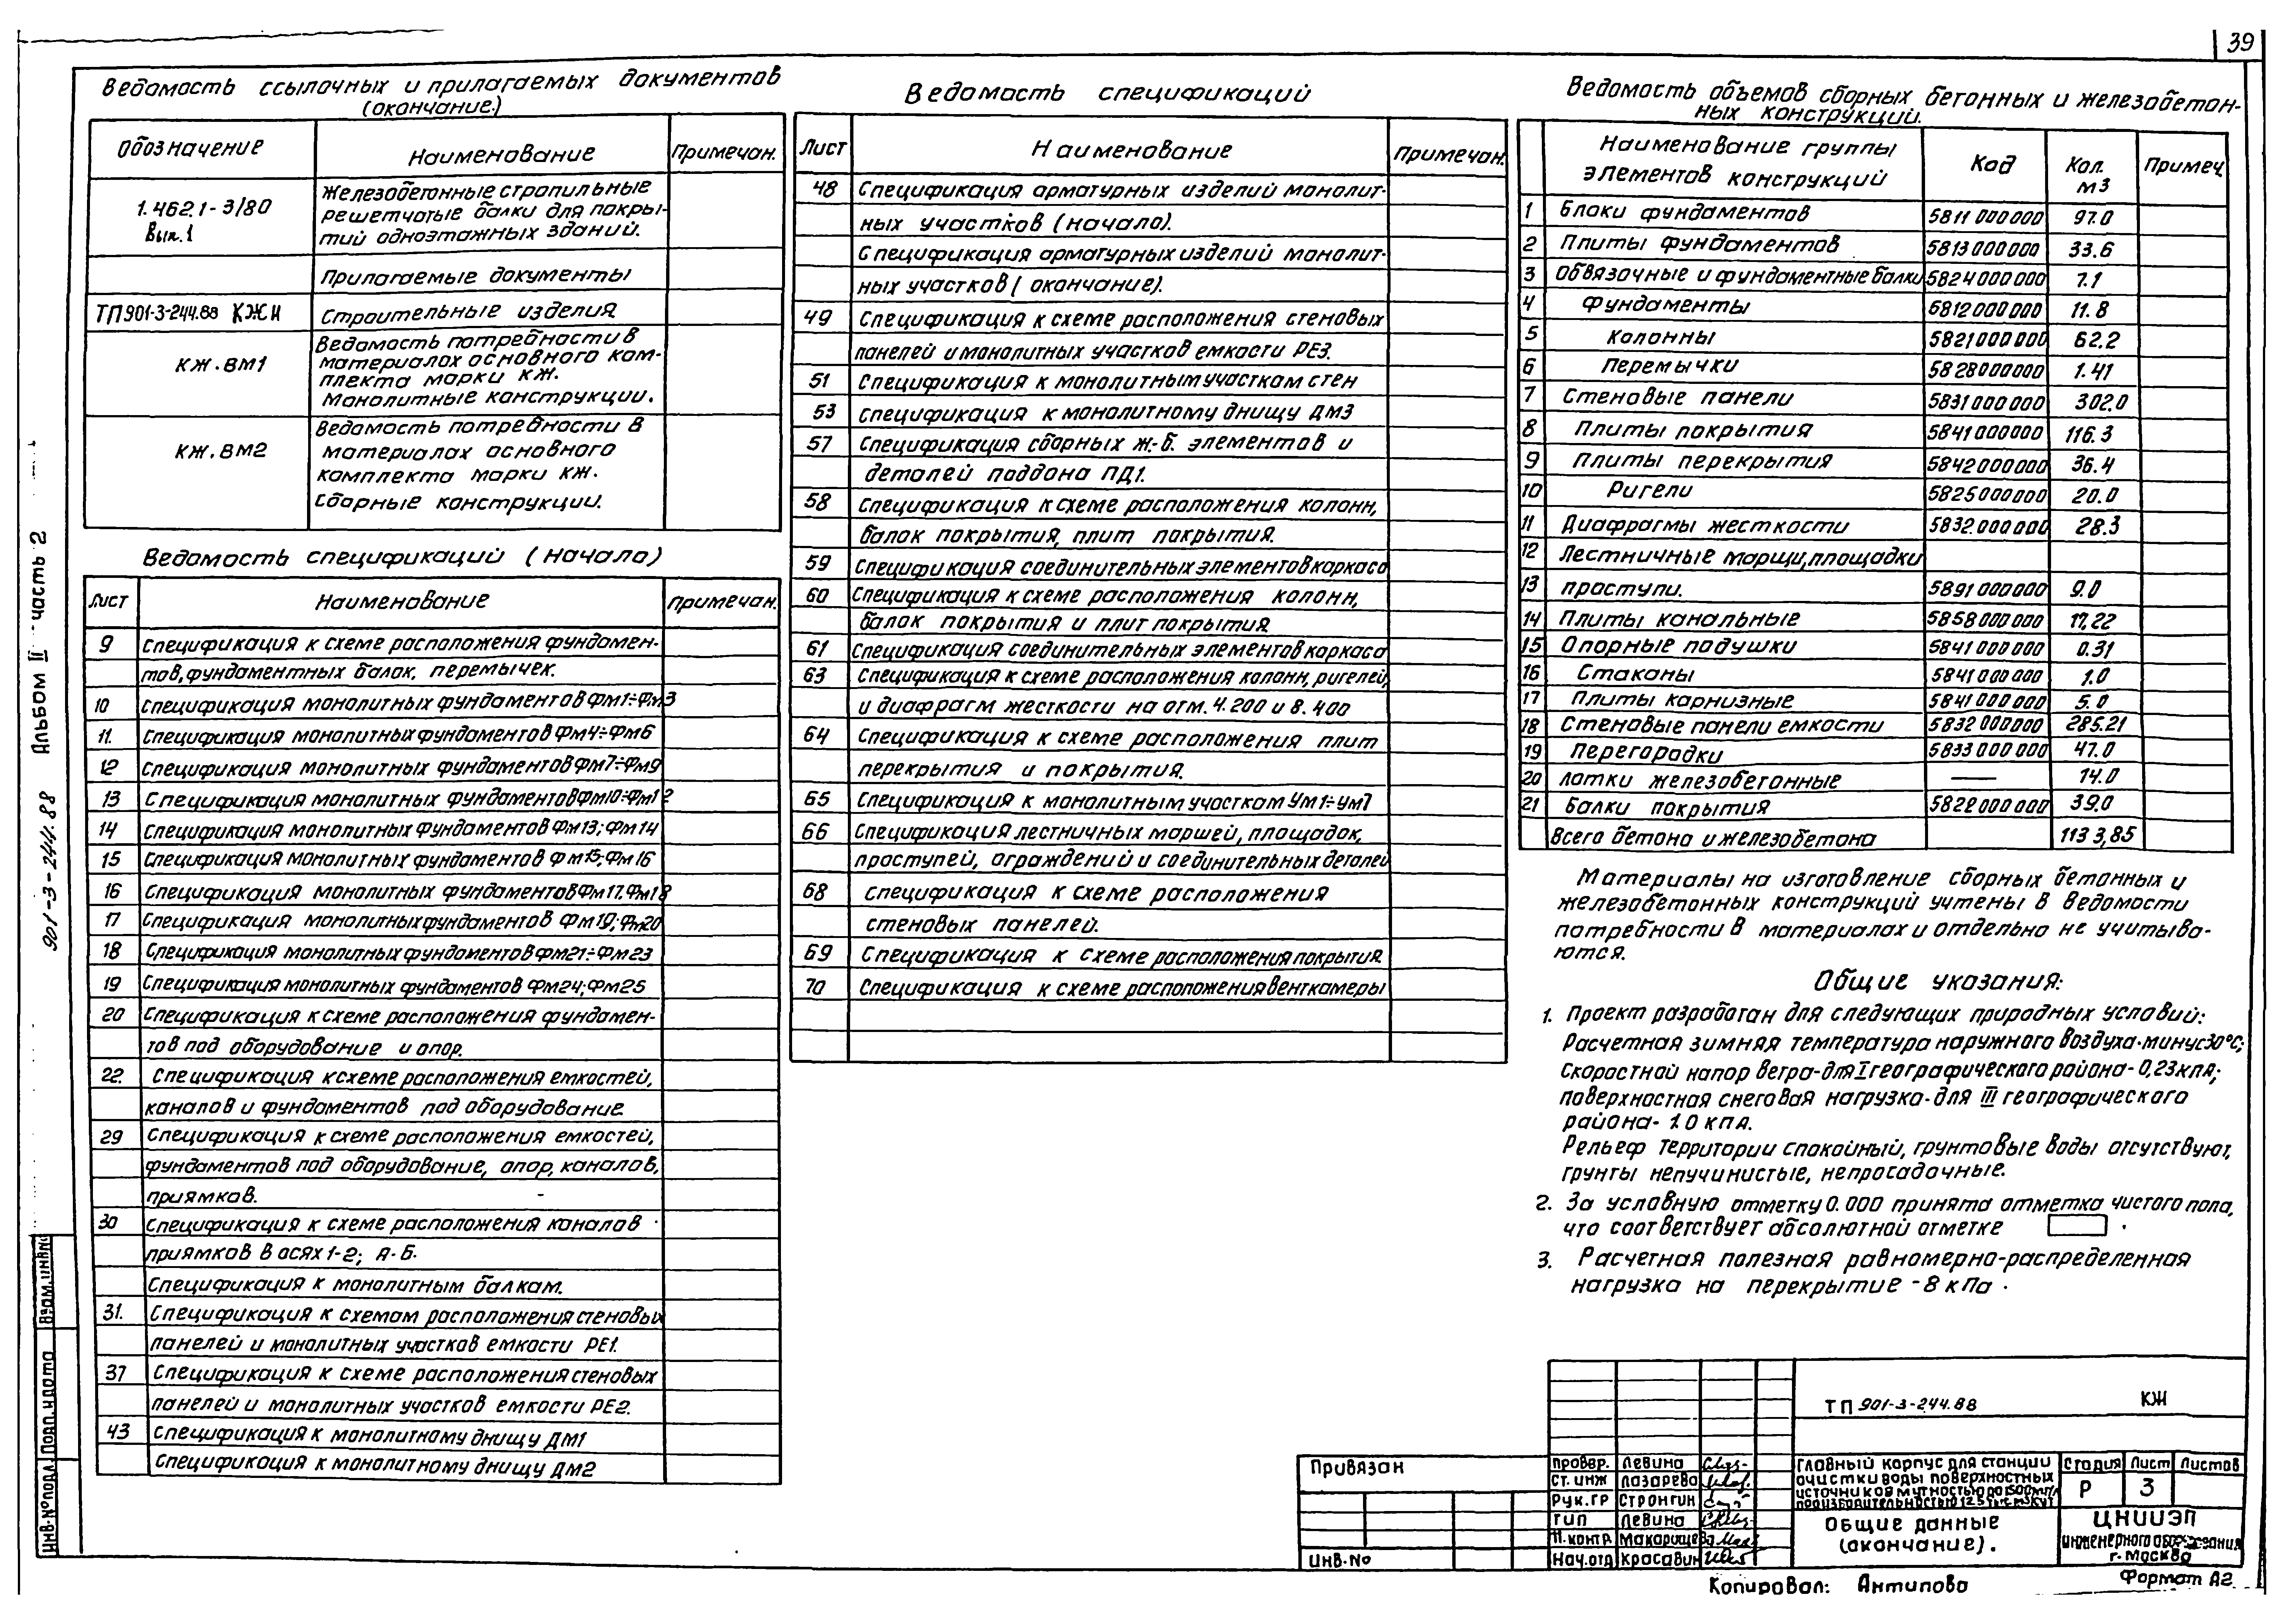 39
Ведомость ссылочных и прилагаемых документов
(окончание.)
Обозначение Наименование Примечан.
1.462.1-3/80 Железобетонные стропильные
Вып.1 решетчатые балки для покры-
тий одноэтажных зданий.
Прилагаемые документы
ТП901-3-244.88 КЖИ Строительные изделия
КЖ.ВМ1 Ведомость потребности в
материалах основного ком-
плекта марки КЖ.
Монолитные конструкции.
КЖ.ВМ2 Ведомость потребности в
материалах основного
комплекта марки КЖ.
Сборные конструкции.
Ведомость спецификаций (Начало)
Лист Наименование Примечан.
9 Спецификация к схеме расположения фундамен-
тов, фундаментных балок, перемычек.
10 Спецификация монолитных фундаментов Фм1÷Фм3
11. Спецификация монолитных фундаментов Фм4÷Фм6
12 Спецификация монолитных фундаментов Фм7÷Фм9
13 Спецификация монолитных фундаментов Фм10÷Фм12
14 Спецификация монолитных фундаментов Фм13; Фм14
15 Спецификация монолитных фундаментов Фм15; Фм16
16 Спецификация монолитных фундаментов Фм17. Фм18
17 Спецификация монолитных фундаментов Фм19; Фм20
18 Спецификация монолитных фундаментов Фм21÷Фм23
19 Спецификация монолитных фундаментов Фм24; Фм25
20 Спецификация к схеме расположения фундамен-
тов под оборудование и опор.
22. Спецификация к схеме расположения емкостей,
каналов и фундаментов под оборудование
29 Спецификация к схеме расположения емкостей,
фундаментов под оборудование, опор, каналов,
приямков.
30 Спецификация к схеме расположения каналов
приямков в осях 1-2; А-Б.
Спецификация к монолитным балкам.
31. Спецификация к схемам расположения стеновых
панелей и монолитных участков емкости РЕ1.
37 Спецификация к схеме расположения стеновых
панелей и монолитных участков емкости РЕ2.
43 Спецификация к монолитному днищу ДМ1
Спецификация к монолитному днищу ДМ2
Ведомость спецификаций
Лист Наименование Примечан.
48 Спецификация арматурных изделий монолит-
ных участков (начало).
Спецификация арматурных изделий монолит-
ных участков (окончание).
49 Спецификация к схеме расположения стеновых
панелей и монолитных участков емкости РЕ3.
51 Спецификация к монолитным участкам стен
53 Спецификация к монолитному днищу ДМ3
57 Спецификация сборных ж.-б. элементов и
деталей поддона ПД1.
58 Спецификация к схеме расположения колонн,
балок покрытия, плит покрытия.
59 Спецификация соединительных элементов каркаса
60 Спецификация к схеме расположения колонн,
балок покрытия и плит покрытия
61 Спецификация соединительных элементов каркаса
63 Спецификация к схеме расположения колонн, ригелей,
и диафрагм жесткости на отм. 4.200 и 8.400
64 Спецификация к схеме расположения плит
перекрытия и покрытия.
65 Спецификация к монолитным участкам Ум1÷Ум7
66 Спецификация лестничных маршей, площадок,
проступей, ограждений и соединительных деталей
68 Спецификация к схеме расположения
стеновых панелей.
69 Спецификация к схеме расположения покрытия
70 Спецификация к схеме расположения венткамеры
Ведомость объемов сборных бетонных и железобетон-
ных конструкций.
Наименование группы элементов конструкций Код Кол. м3 Примеч.
1 Блоки фундаментов 5811000000 97.0
2 Плиты фундаментов 5813000000 33.6
3 Обвязочные и фундаментные балки 5824000000 7.1
4 Фундаменты 5812000000 11.8
5 Колонны 5821000000 62.2
6 Перемычки 5828000000 1.41
7 Стеновые панели 5831000000 302.0
8 Плиты покрытия 5841000000 116.3
9 Плиты перекрытия 5842000000 36.4
10 Ригели 5825000000 20.0
11 Диафрагмы жесткости 5832000000 28.3
12 Лестничные марши, площадки
13 проступи. 5891000000 9.0
14 Плиты канальные 5858000000 17,22
15 Опорные подушки 5841000000 0.31
16 Стаканы 5841000000 1.0
17 Плиты карнизные 5841000000 5.0
18 Стеновые панели емкости 5832000000 285.21
19 Перегородки 5833000000 47.0
20 Лотки железобетонные — 14.0
21 Балки покрытия 5822000000 39.0
Всего бетона и железобетона 1133,85
Материалы на изготовление сборных бетонных и
железобетонных конструкций учтены в ведомости
потребности в материалах и отдельно не учитыва-
ются.
Общие указания:
1. Проект разработан для следующих природных условий:
Расчетная зимняя температура наружного воздуха-минус30°С;
скоростной напор ветра-для I географического района-0,23кПа;
поверхностная снеговая нагрузка-для III географического
района-1.0 кПа.
Рельеф территории спокойный, грунтовые воды отсутствуют,
грунты непучинистые, непросадочные.
2. За условную отметку 0.000 принята отметка чистого пола,
что соответствует абсолютной отметке .
3. Расчетная полезная равномерно-распределенная
нагрузка на перекрытие -8 кПа.
Альбом II часть 2
901-3-244.88
Взам.инв№
Подп.и дата
Инв.№подл.
Привязан
Инв.№
ТП 901-3-244.88 КЖ
провер. Левина
ст.инж Лазарева
Рук.гр Стронгин
гип Левина
Н.контр
Нач.отд Красавин
Главный корпус для станции
очистки воды поверхностных
источников мутностью до 1500мг/л
производительностью 12.5 тыс.м3/сут
Стадия Лист Листов
Р 3
Общие данные
(окончание).
ЦНИИЭП
инженерного оборудования
г.Москва
Копировал: Антипова
Формат А2